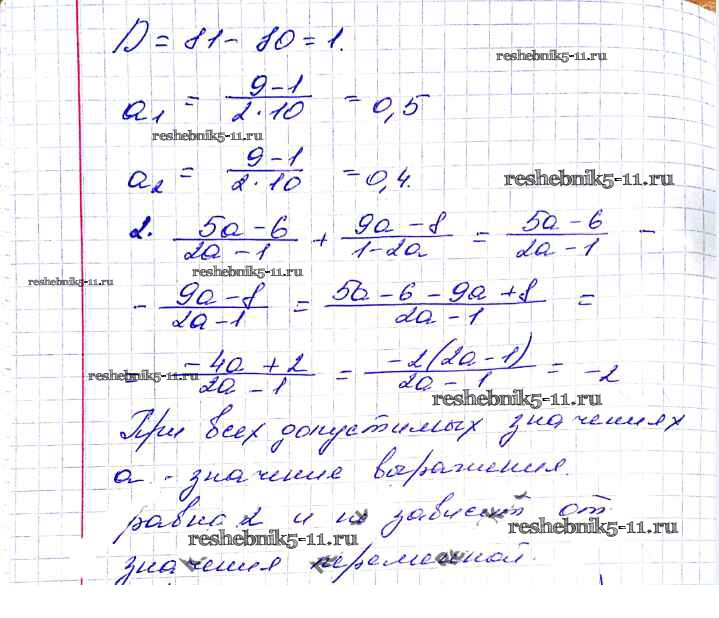 D = 81 - 80 = 1.
reshebnik5-11.ru
a₁ = (9-1)/(2·10) = 0,5
reshebnik5-11.ru
a₂ = (9-1)/(2·10) = 0,4.
reshebnik5-11.ru
2. (5a-6)/(2a-1) + (9a-8)/(1-2a) = (5a-6)/(2a-1) -
reshebnik5-11.ru
reshebnik5-11.ru
- (9a-8)/(2a-1) = (5a-6-9a+8)/(2a-1) =
= (-4a+2)/(2a-1) = (-2(2a-1))/(2a-1) = -2
reshebnik5-11.ru
reshebnik5-11.ru
При всех допустимых значениях
a - значение выражения.
равна 2 и не зависит от
reshebnik5-11.ru
reshebnik5-11.ru
значения переменной.